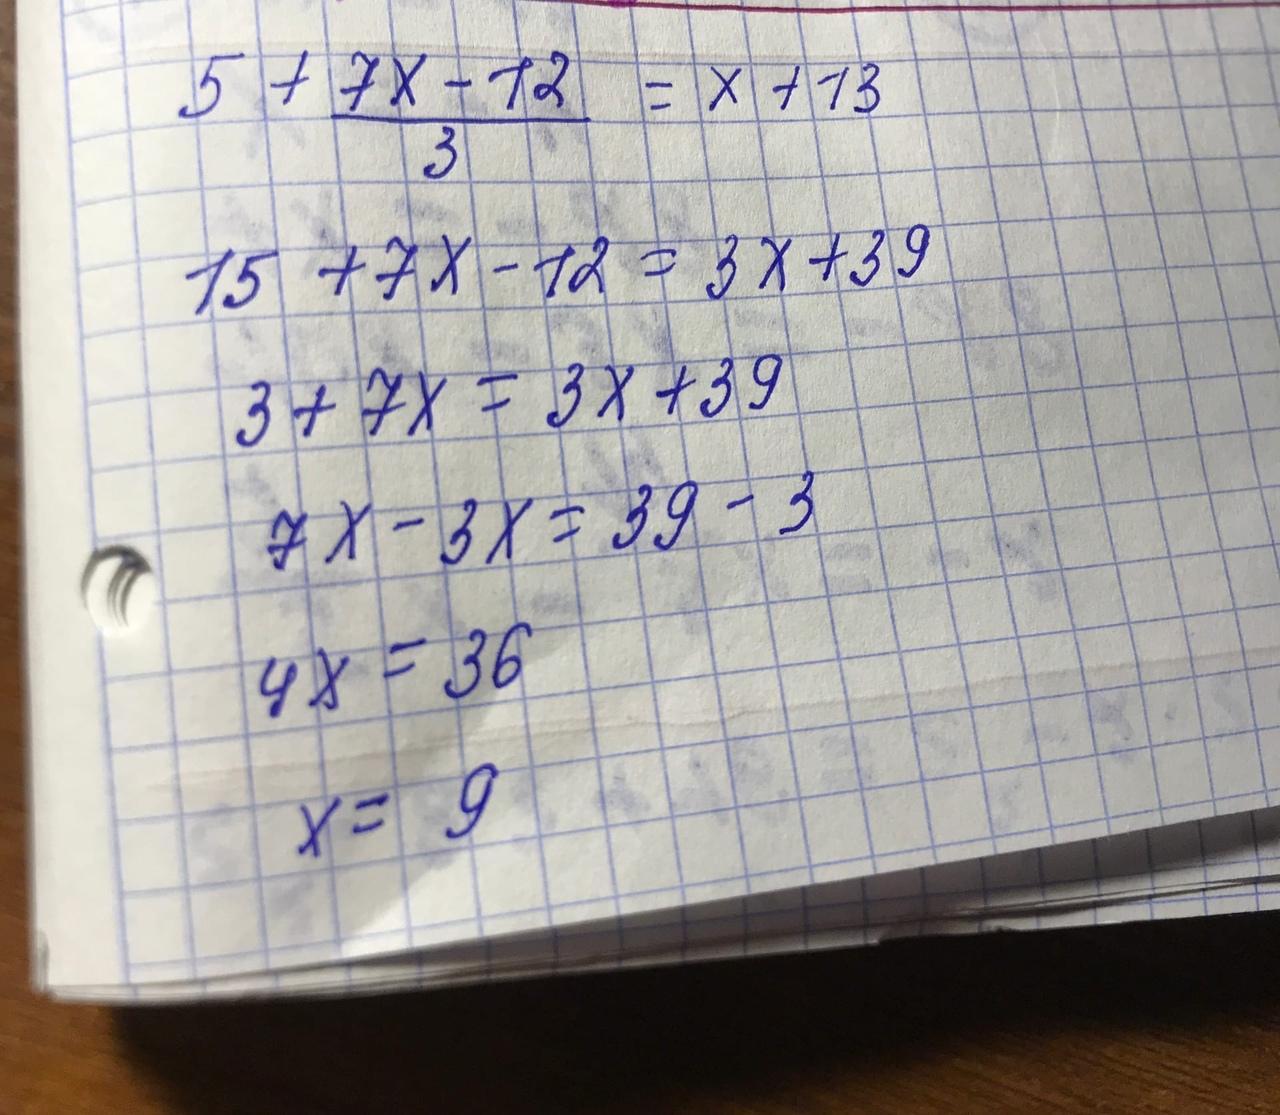 5 + (7x - 12)/3 = x + 13
15 + 7x - 12 = 3x + 39
3 + 7x = 3x + 39
7x - 3x = 39 - 3
4x = 36
x = 9